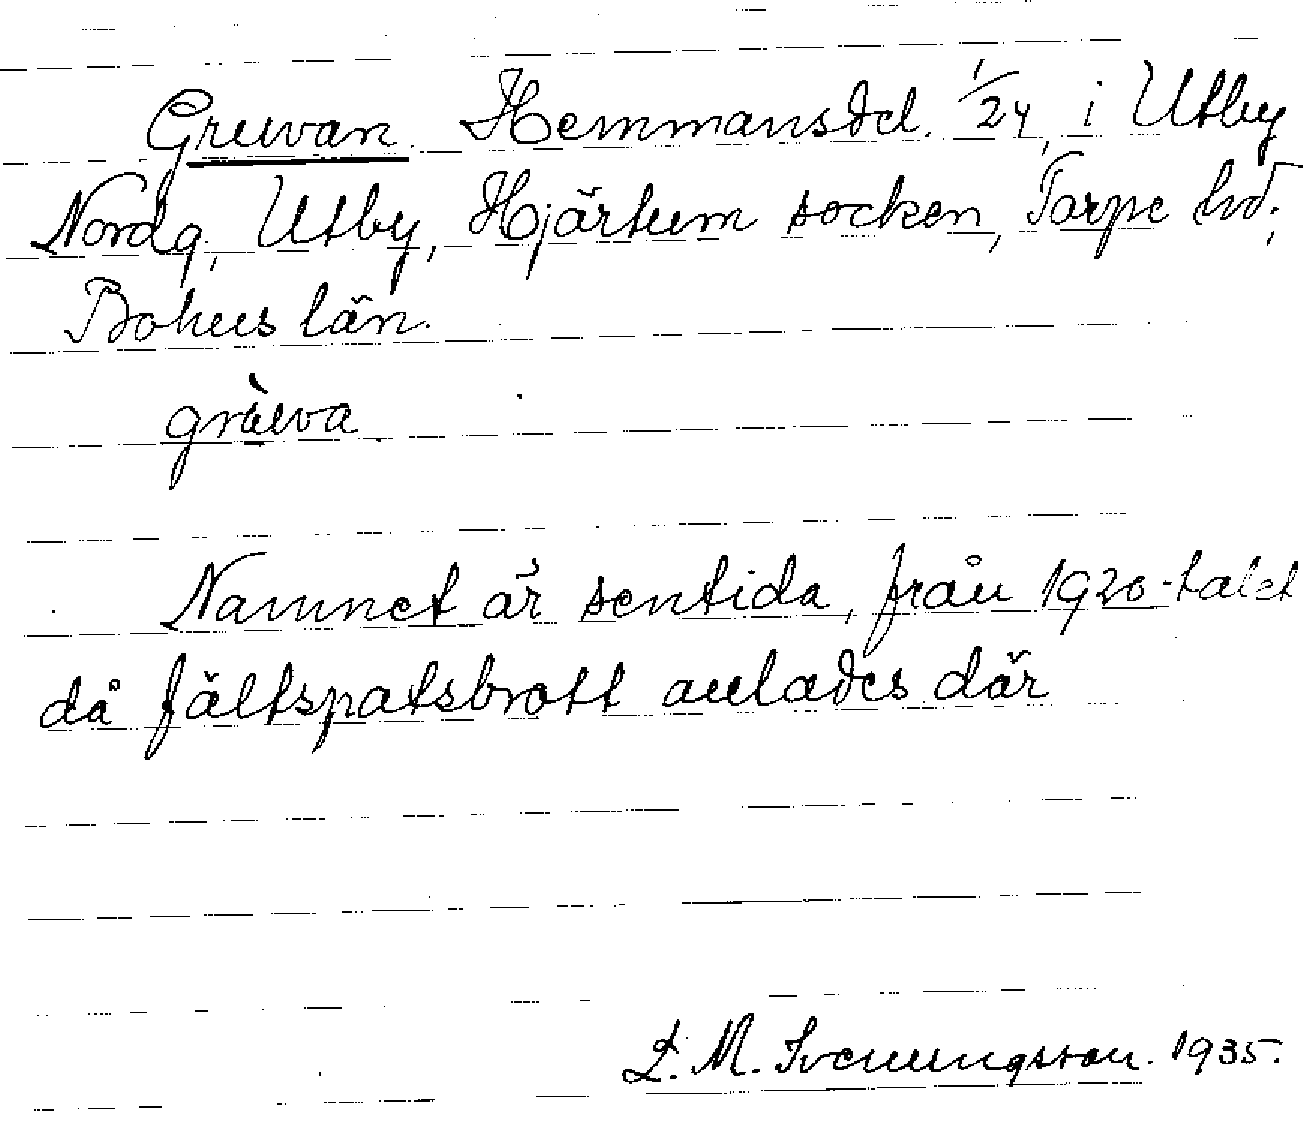 Gruvan. Hemmansdel. 1/24, i Utby
Nordg, Utby, Hjärtum socken, Torpe hd,
Bohus län.
gràuva
Namnet är sentida, från 1920-talet
då fältspatsbrott anlades där
L. M. Svenungsson. 1935.